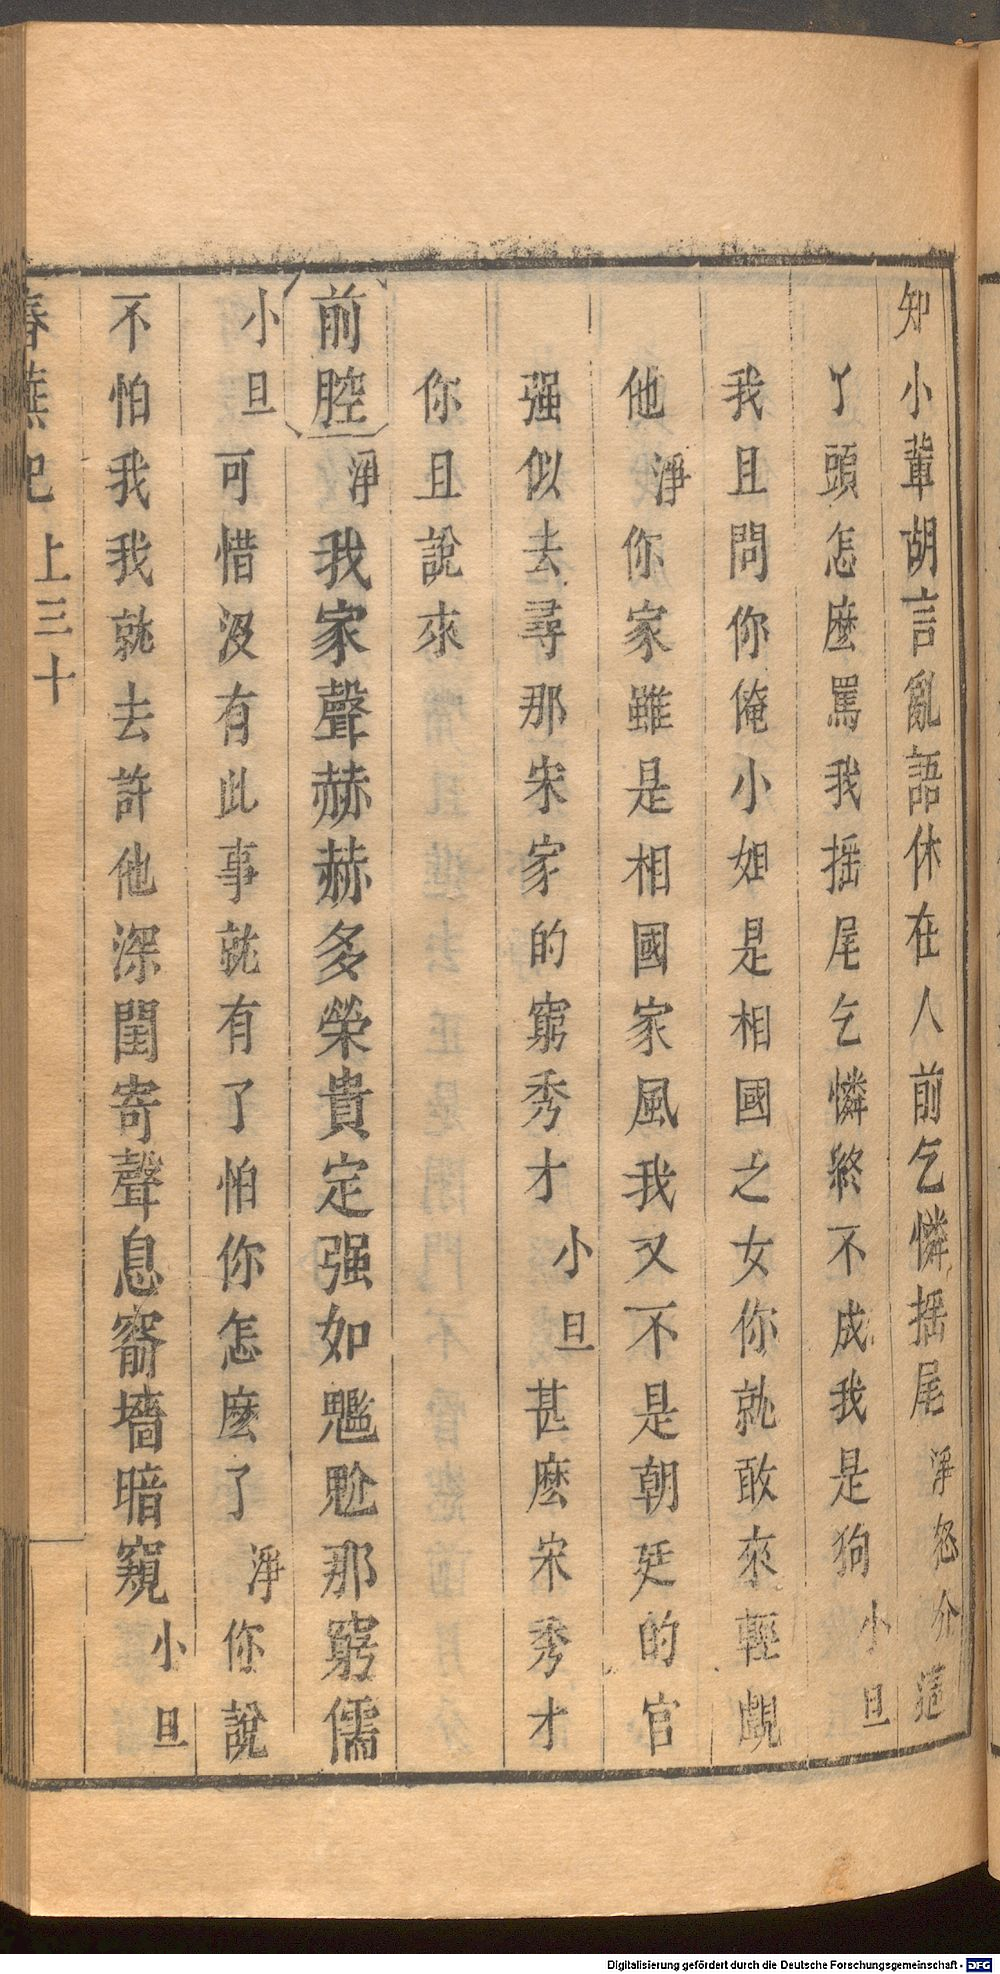 知小輩胡言亂語休在人前乞憐搖尾淨怒介這
丫頭怎麼罵我搖尾乞憐終不成我是狗小旦
我且問你俺小姐是相國之女你就敢來輕覷
他淨你家雖是相國家風我又不是朝廷的官
强似去尋那宋家的窮秀才小旦甚麼宋秀才
你且說來
前腔淨我家聲赫赫多榮貴定强如尷尬那窮儒
小旦可惜沒有此事就有了怕你怎麼了淨你說
不怕我我就去許他深閨寄聲息窬墻暗窺小旦
春蕪記 上三十
Digitalisierung gefördert durch die Deutsche Forschungsgemeinschaft - DFG